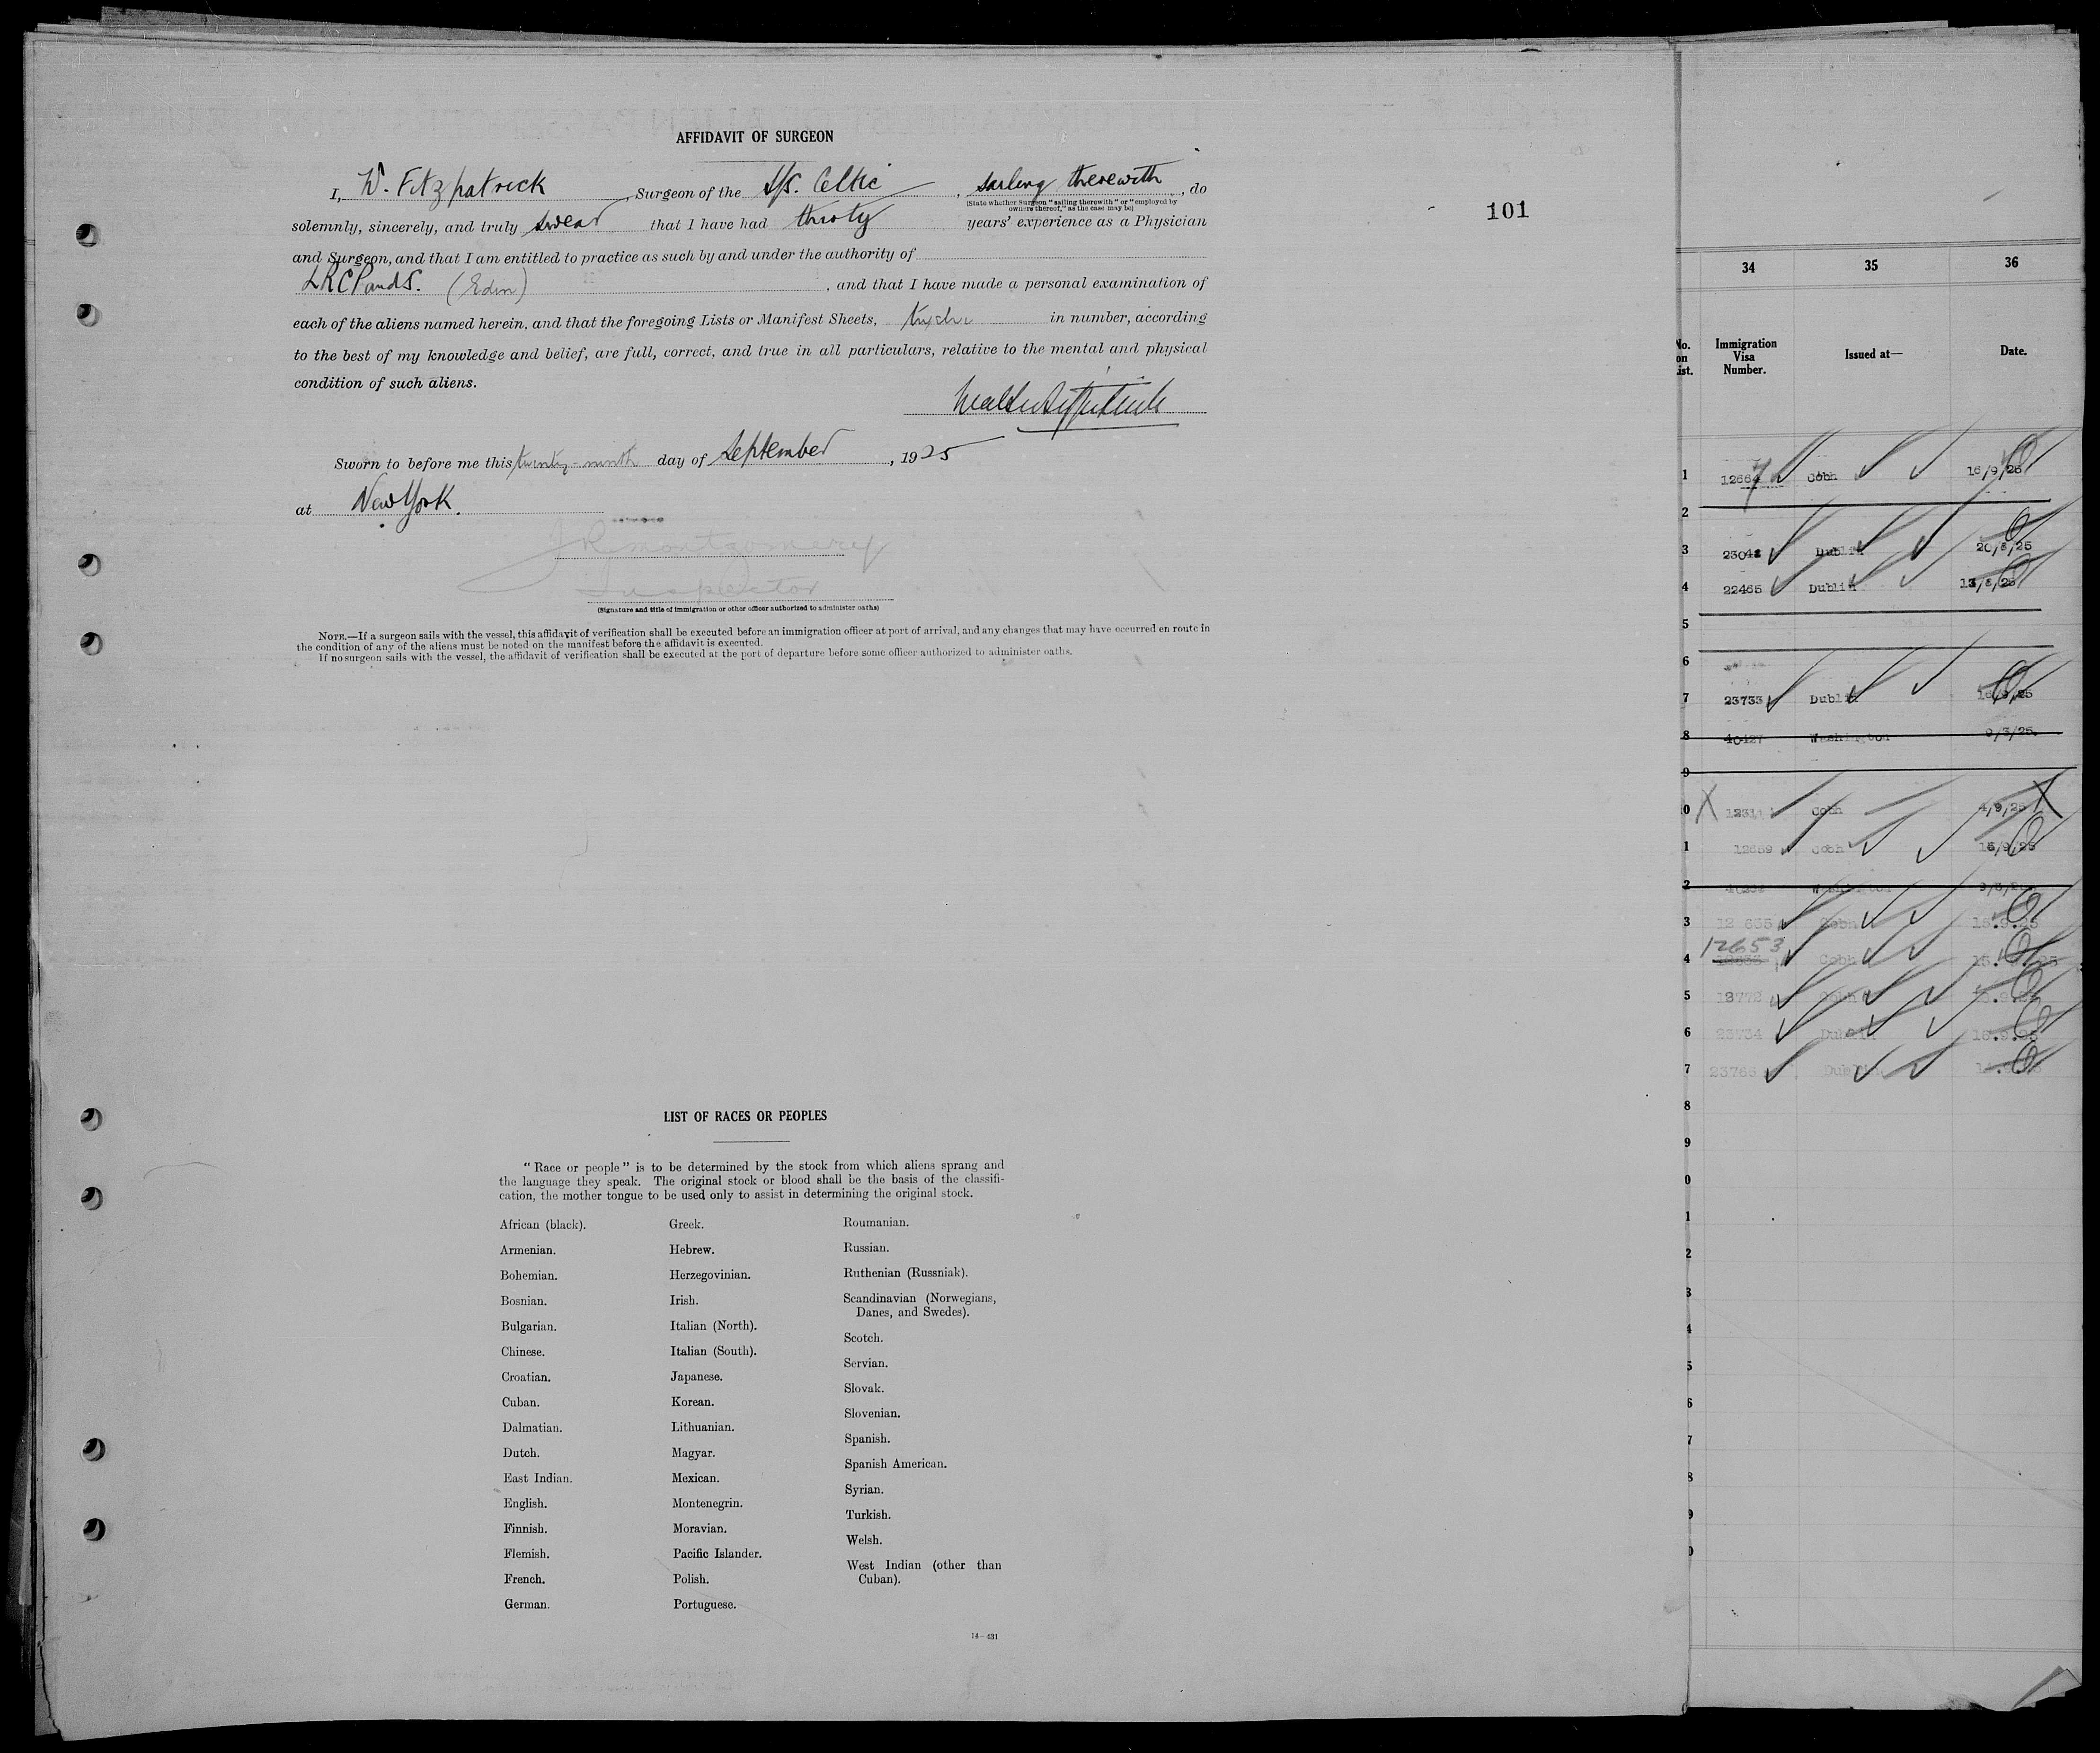 AFFIDAVIT OF SURGEON
I, W. Fitzpatrick, Surgeon of the S/S. Celtic, sailing therewith, do
(State whether Surgeon "sailing therewith" or "employed by
owners thereof," as the case may be)
solemnly, sincerely, and truly swear that I have had thirty years' experience as a Physician
and Surgeon, and that I am entitled to practice as such by and under the authority of
LRCP and S. (Edin), and that I have made a personal examination of
each of the aliens named herein, and that the foregoing Lists or Manifest Sheets, in number, according
to the best of my knowledge and belief, are full, correct, and true in all particulars, relative to the mental and physical
condition of such aliens.
Sworn to before me this twenty-ninth day of September, 1925
at New York.
J R Montgomery
Inspector
(Signature and title of immigration or other officer authorized to administer oaths)
NOTE.—If a surgeon sails with the vessel, this affidavit of verification shall be executed before an immigration officer at port of arrival, and any changes that may have occurred en route in
the condition of any of the aliens must be noted on the manifest before the affidavit is executed.
If no surgeon sails with the vessel, the affidavit of verification shall be executed at the port of departure before some officer authorized to administer oaths.
LIST OF RACES OR PEOPLES
"Race or people" is to be determined by the stock from which aliens sprang and
the language they speak. The original stock or blood shall be the basis of the classifi-
cation, the mother tongue to be used only to assist in determining the original stock.
African (black).
Armenian.
Bohemian.
Bosnian.
Bulgarian.
Chinese.
Croatian.
Cuban.
Dalmatian.
Dutch.
East Indian.
English.
Finnish.
Flemish.
French.
German.
Greek.
Hebrew.
Herzegovinian.
Irish.
Italian (North).
Italian (South).
Japanese.
Korean.
Lithuanian.
Magyar.
Mexican.
Montenegrin.
Moravian.
Pacific Islander.
Polish.
Portuguese.
Roumanian.
Russian.
Ruthenian (Russniak).
Scandinavian (Norwegians,
Danes, and Swedes).
Scotch.
Servian.
Slovak.
Slovenian.
Spanish.
Spanish American.
Syrian.
Turkish.
Welsh.
West Indian (other than
Cuban).
14-431
101
34 35 36
No. on List. Immigration Visa Number. Issued at— Date.
1 Cobh 16/9/25
2
3 Dublin
4 22465 Dublin
5
6
7 23733 Dublin 16/9/25
8 40427 Washington 9/3/25.
9
0 Cobh 4/9/25
1 12659 Cobh
2 Washington
3 12 635 Cobh 15.9.25
12653
4 Cobh
5 Cobh
6 23734 Dublin 16.9.25
7 23766 Dublin
8
9
0
1
2
3
4
5
6
7
8
9
0